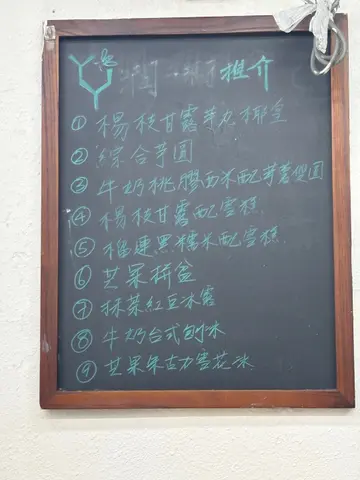 推介
① 楊枝甘露芋丸椰皇
② 綜合芋圓
③ 牛奶桃膠西米配芋薯傻圓
④ 楊枝甘露配雪糕
⑤ 榴連黑糯米配雪糕
⑥ 芒果拼盆
⑦ 抹茶紅豆冰露
⑧ 牛奶台式刨冰
⑨ 芒果朱古力雪花冰